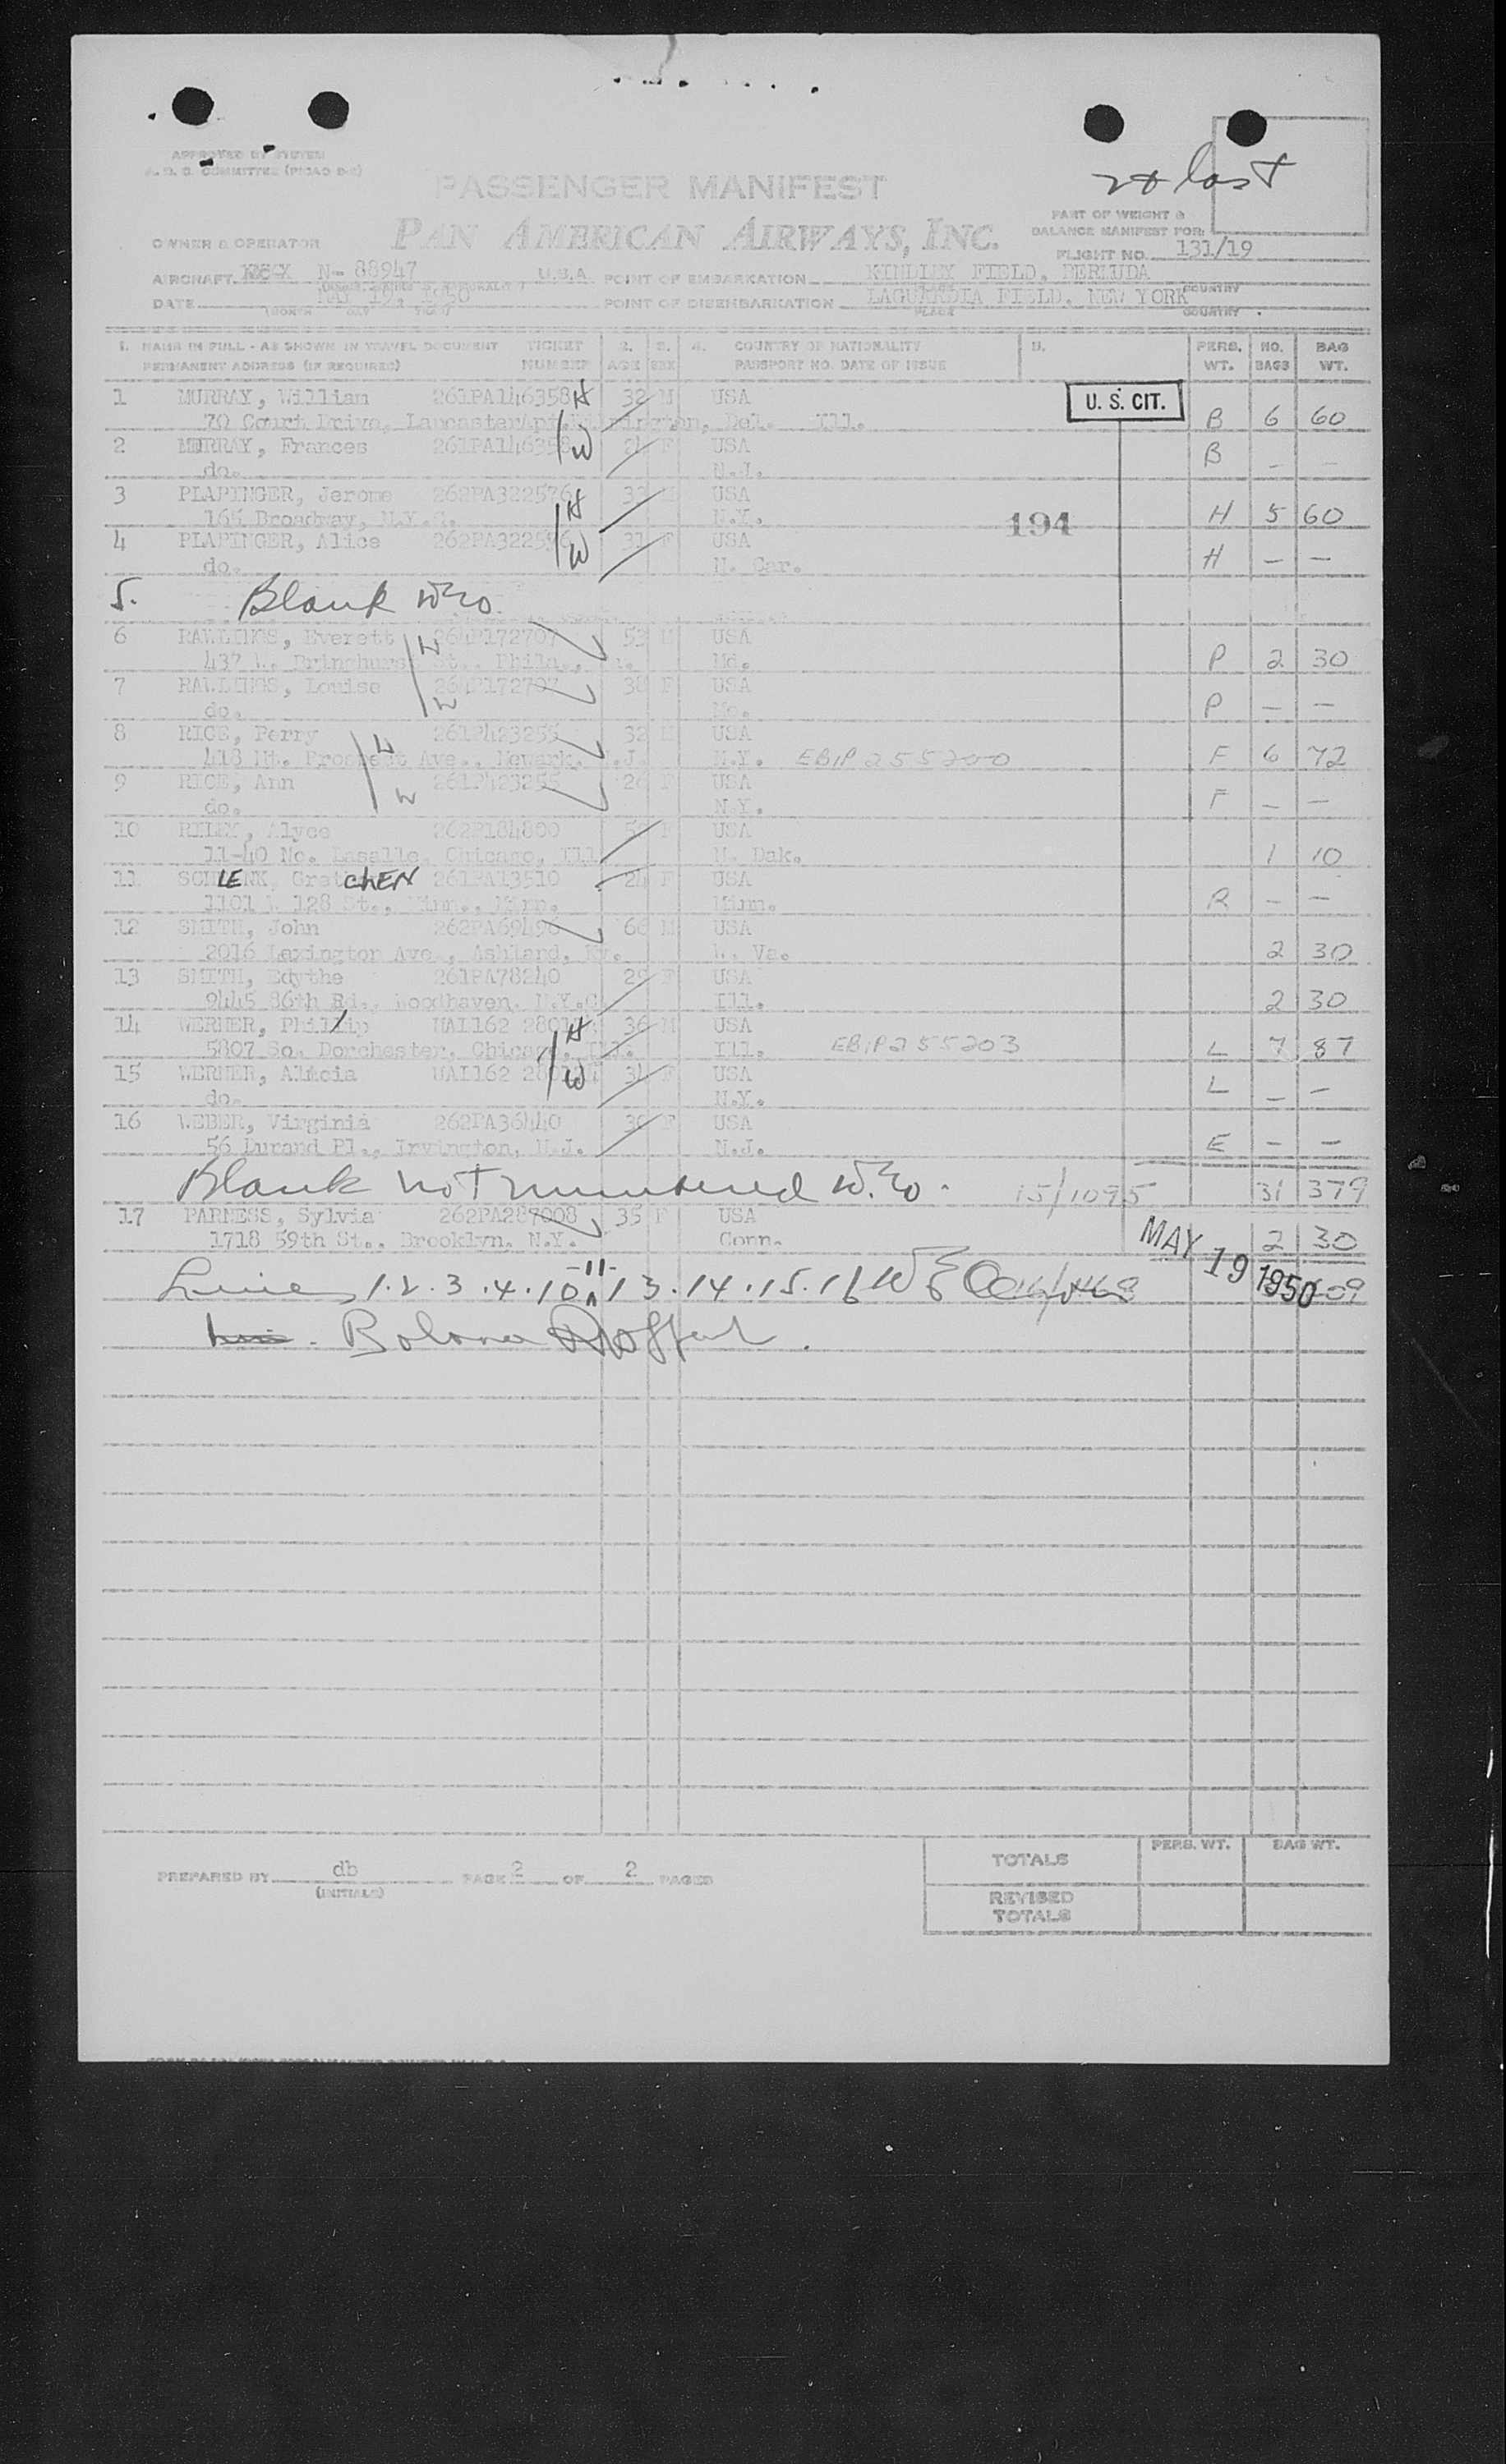 APPROVED BY SYSTEM
A. D. S. COMMITTEE (PICAO D-2)
no last
PASSENGER MANIFEST
PAN AMERICAN AIRWAYS, INC.
PART OF WEIGHT &
BALANCE MANIFEST FOR:
OWNER & OPERATOR
FLIGHT NO. 131/19
AIRCRAFT N- 88947 U.S.A. POINT OF EMBARKATION KINDLEY FIELD, BERMUDA
DATE MAY 19, 1950 POINT OF DISEMBARKATION LAGUARDIA FIELD, NEW YORK COUNTRY
(MONTH DAY YEAR) PLACE COUNTRY
1. NAME IN FULL - AS SHOWN IN TRAVEL DOCUMENT TICKET 2. 3. 4. COUNTRY OF NATIONALITY 5. PERS. NO. BAG
PERMANENT ADDRESS (IF REQUIRED) NUMBER AGE SEX PASSPORT NO. DATE OF ISSUE WT. BAGS WT.
1 MURRAY, William 261PA146358 H 32 M USA U. S. CIT.
70 Court Drive, Lancaster Apt. Wilmington, Del. Ill. B 6 60
2 MURRAY, Frances 261PA146358 W 24 F USA B – –
do. N.J.
3 PLAPINGER, Jerome 262PA322576 H 33 M USA
165 Broadway, N.Y.C. N.Y. 194 H 5 60
4 PLAPINGER, Alice 262PA322576 W 31 F USA H – –
do. N. Car.
5. Blank WEO.
6 RAWLINGS, Everett H 264P172707 53 M USA
437 W. Bringhurst St., Phila., Md. P 2 30
7 RAWLINGS, Louise W 264P172707 38 F USA P – –
do. Mo.
8 RICE, Perry H 261P423255 32 M USA
418 Mt. Prospect Ave., Newark, N.J. N.Y. EBIP255200 F 6 72
9 RICE, Ann W 261P423255 26 F USA F – –
do. N.Y.
10 RILEY, Alyce 262P184800 F USA
11-40 No. Lasalle, Chicago, Ill. N. Dak. 1 10
11 SCHLENK, GretCHEN 261PA13510 24 F USA
1101 W. 128 St., Minn., Minn. Minn. R – –
12 SMITH, John 262PA69496 66 M USA
2016 Lexington Ave., Ashland, Ky. W. Va. 2 30
13 SMITH, Edythe 261PA78240 29 F USA
9445 86th Rd., Woodhaven, N.Y.C. Ill. 2 30
14 WERNER, Phillip UAL162 H 36 M USA
5807 So. Dorchester, Chicago, Ill. Ill. EBIP255203 L 7 87
15 WERNER, Alicia UAL162 W 34 F USA L – –
do. N.Y.
16 WEBER, Virginia 262PA36440 30 F USA
56 Durand Pl., Irvington, N.J. N.J. E – –
Blank not numbered W.EO. 15/1095 31 379
17 PARNESS, Sylvia 262PA287008 35 F USA
1718 59th St., Brooklyn, N.Y. Conn. 2 30
MAY 19 1950
Lines 1.2.3.4.10.11.13.14.15.16 WEO
PREPARED BY db PAGE 2 OF 2 PAGES
(INITIALS)
PERS. WT. BAG WT.
TOTALS
REVISED
TOTALS